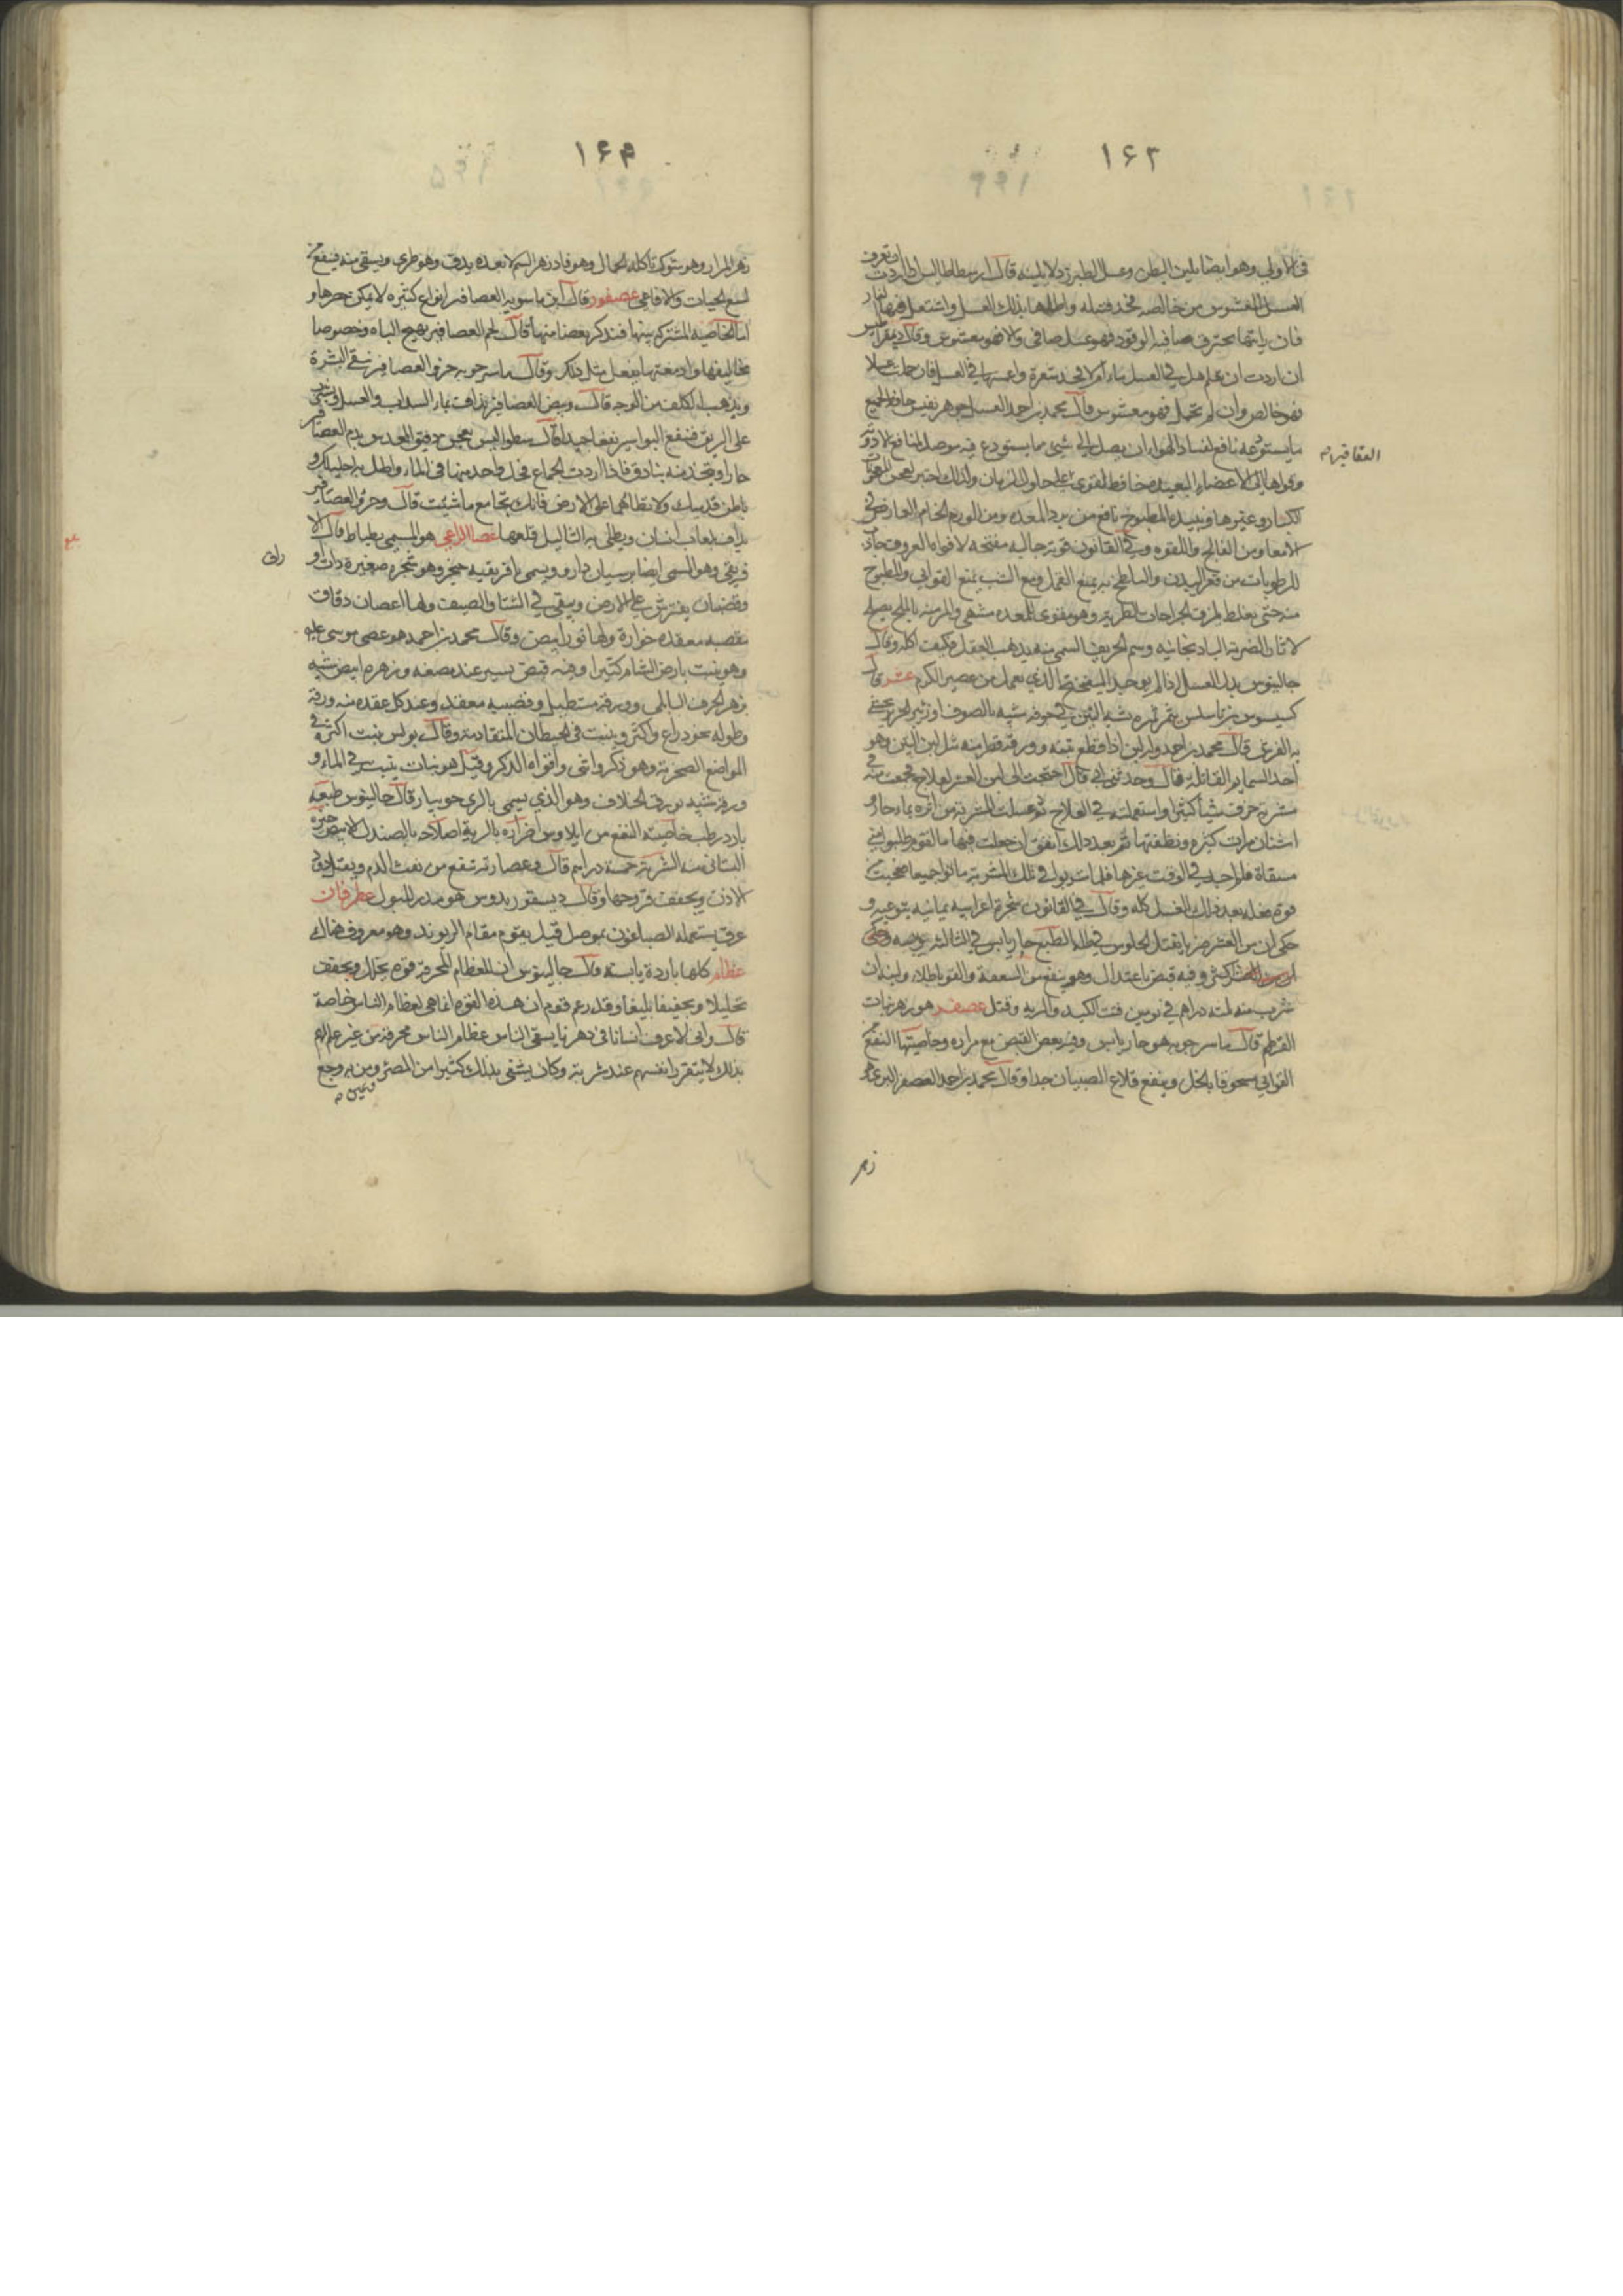 ١٦٣
فى الاولى وهو ايضا يلين البطن وعسل الطبرزد لا يلينه قال ارسطاطاليس اذا اردت ان تعرف
العسل المغشوش من خالصه فخذ فتيله واطلها بذلك العسل واشتعل فيها النار
فان رايتها يحترق صافيه الوقود فهو عسل صافى والا فهو مغشوش وقال ديمقراطيس
ان اردت ان تعلم هل فى العسل ماء ام لا فخذ شعرة واغمسها فى العسل فان حملت عسلا
فهو خالص وان لم تحمل فهو مغشوش قال محمد بن احمد العسل جوهر نفيس حافظ لجميع
ما يستودعه نافع لفساد الهواء ان يصل الى شئ مما يستودع فيه موصل لمنافع الادويه
العقاقيرم
وقواها الى الاعضاء البعيده حافظ لقوى على طول الزمان ولذلك اختير لعجن المعجونات
الكبار وغيرها ونبيذه المطبوخ نافع من برد المعده ومن الورم الخام العارض فى
الامعا ومن الفالج واللقوه وفى القانون قوته جاليه مفتحه لافواه العروق جاذبه
للرطوبات من قعر البدن والتلطخ به يمنع القمل ومع الشب يمنع القوابى والمطبوخ
منه حتى يغلظ يلزق الجراحات الطريه وهو مقوى للمعده مشهى والمزينه بالملح يصلح
لاثار الضربة الباذنجانيه وسم الحريف السمى منه يذهب العقل فكيف اكله وقال
جالينوس بدل العسل اذا لم يوجد الميفختج الذى يعمل من عصير الكرم عشر قال
كيسوس بن تاسلس يثمر ثمره شبه التين فى جوفه شبه بالصوف او زئبر الحرير يحشى
به الفرش قال محمد بن احمد وله لبن اذا قطع تينه وورقه قطر منه مثل لبن التين وهو
احد السمايم القاتله قال وحدثنى ابى قال احتجت الى لبن العشر لعلاج فجمعت منه فى
مشربة خزف شيئا كثيرا واستعملته فى العلاج ثم غسلت المشربة من اثره بماء حار و
اشنان مرات كثيره ونظفتها ثم بعد ذلك اتفق ان جعلت فيها ما القوم طلبوا منى
مسقاة فلم احد فى الوقت غيرها فلما شربوا فى تلك المشربة ماتوا جميعا فعجبت من
قوة فعله بعد ذلك الغسل كله وقال فى القانون شجرة اعرابيه يمانيه يتوعيه و
حكى ان من العشر ضربا يقتل الجلوس فى ظله الطبع حار يابس فى الثالثه
وفيه قبض باعتدال وهو ينفع من السعفة والقوبا طلاء ولبنه ان
شرب منه ثلثه دراهم فى يومين فتت الكبد والريه وقتل عصفر هو زهر نبات
القرطم قال ماسرجويه هو حار يابس وفيه بعض القبض مع مراره وخاصيتها النفع من
القوابى مسحوقا بالخل وينفع قلاع الصبيان جدا وقال محمد بن احمد العصفر البرى هو
زهر
١٦٤
زهر المرار وهو شوك تاكله الجمال وهو فادزهر السم لا نعده يدق وهو طرى ويسقى منه فينفع من
لسع الحيات والافاعى عصفور قال ابن ماسويه العصافير انواع كثيره لا يمكن حصرها و
اما الخاصيه المشتركه بينها فنذكر بعضا منها قال لحم العصافير يهيج الباه وخصوصا
مخاليقها وادمغتها يفعل مثل ذلك وقال ماسرجويه خرو العصافير ينقى البشرة
ويذهب الكلف من الوجه قال وبيض العصافير يذاف بماء السداب والعسل ويسقى
على الريق فينفع البواسير نفعا جيدا قال سطوا ليس يعجن دقيق العدس بدم العصافير
حارا ويتخذ منه بنادق فاذا اردت الجماع فخذ واحد منها فى الماء واطل به احليلك و
باطن قدميك ولا تطاهما على الارض فانك تجامع ما شئت قال وخرو العصافير
يداف بلعاب انسان ويطلى به الثاليل قلعها عصا الراعى هو المسمى بطباط قال الا
فريقى وهو المسمى ايضا برسيان دارو ويسمى بافريقيه عنجر وهو شجره صغيرة ذات اوراق
وقضبان يفترش على الارض ويبقى فى الشتا والصيف ولها اغصان دقاق
مقصبه معقده خوارة ولها نور ابيض وقال محمد بن احمد هو عصى موسى عليه
وهو ينبت بارض الشام كثيرا وفيه قبض يسير عند مضغه وزهره ابيض شبيه
بزهر الحرف البابلى وورقه مستطيل وقضيبه معقد وعند كل عقده منه ورقه
وطوله نحو ذراع واكثر وينبت فى الحيطان المتقادمه وقال بولس ينبت اكثره فى
المواضع الصخريه وهو ذكر وانثى واقواه الذكر وقيل هو نبات ينبت فى الماء و
ورقه شبيه بورق الخلاف وهو الذى يسمى بالرى جوبيار قال جالينوس طبعه
بارد رطب خاصيته النفع من ايلاوس اضراره بالرية اصلاحه بالصندل الابيض خيره
البستانى منه الشربة خمسة دراهم قال وعصارته تنفع من نفث الدم ويقتل دود
الاذن ويجفف قروحها وقال ديسقوريدوس هو مدر للبول عطرفان
عرق يستعمله الصباغون بموصل قيل يقوم مقام الريوند وهو معروف هناك
عظام كلها باردة يابسه قال جالينوس ان للعظام المحرقه قوه يحلل ويجفف
تحليلا وتجفيفا بليغا وقد زعم قوم ان هذه القوه انما هى لعظام الناس خاصة
قال وانى لاعرف انسانا فى دهرنا يسقى الناس عظام الناس محرقه من غير علمهم
بذلك لئلا يتقزز انفسهم عند شربته وكان يشفى بذلك كثيرا من الصرع ومن به وجع